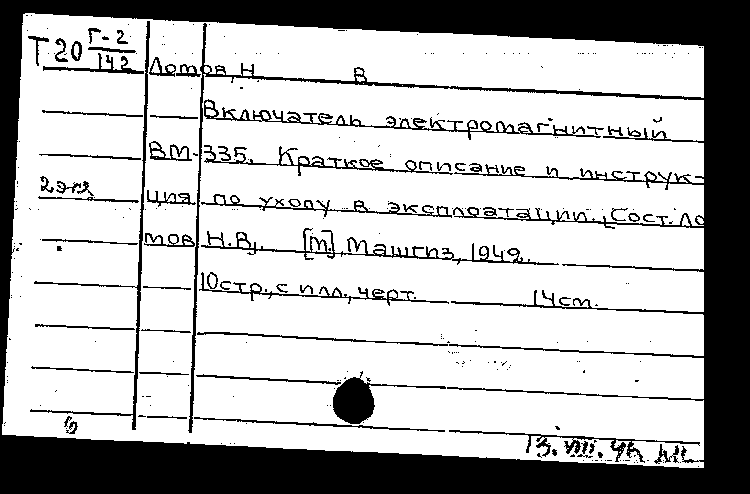 Т20 Г-2
142
Лотов, Н В
Включатель электромагнитный
ВМ-335. Краткое описание и инструк-
2 экз
ция по уходу в эксплоатации. [Сост. Ло
тов Н.В]. [М], Машгиз, 1942.
10 стр., с илл., черт. 14 см.
13. VIII. 42